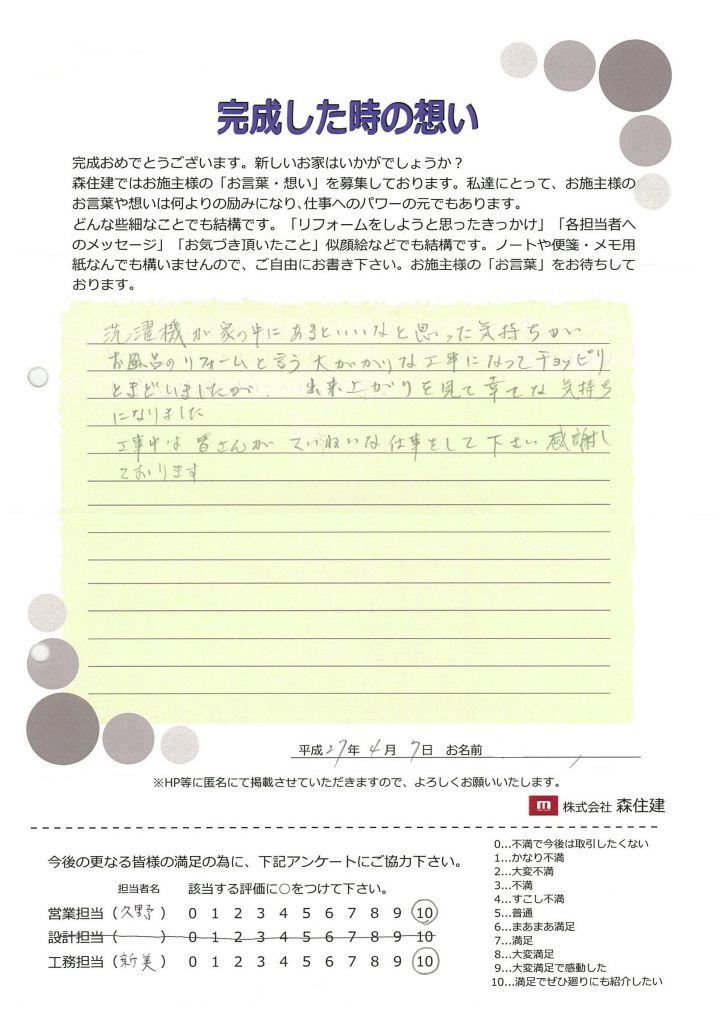 完成した時の想い
完成おめでとうございます。新しいお家はいかがでしょうか？
森住建ではお施主様の「お言葉・想い」を募集しております。私達にとって、お施主様の
お言葉や想いは何よりの励みになり、仕事へのパワーの元でもあります。
どんな些細なことでも結構です。「リフォームをしようと思ったきっかけ」「各担当者へ
のメッセージ」「お気づき頂いたこと」似顔絵などでも結構です。ノートや便箋・メモ用
紙なんでも構いませんので、ご自由にお書き下さい。お施主様の「お言葉」をお待ちして
おります。
洗濯機が家の中にあるといいなと思った気持ちがい
お風呂のリフォームと言う大がかりな工事になってチョッピリ
とまどいましたが、出来上がりを見て幸せな気持ち
になりました
工事中は皆さんがていねいな仕事をして下さい感謝し
ております
平成27年4月7日 お名前
※HP等に匿名にて掲載させていただきますので、よろしくお願いいたします。
m 株式会社 森住建
今後の更なる皆様の満足の為に、下記アンケートにご協力下さい。
担当者名 該当する評価に○をつけて下さい。
営業担当（久野） 0 1 2 3 4 5 6 7 8 9 10
設計担当（ ） 0 1 2 3 4 5 6 7 8 9 10
工務担当（新美） 0 1 2 3 4 5 6 7 8 9 10
0…不満で今後は取引したくない
1…かなり不満
2…大変不満
3…不満
4…すこし不満
5…普通
6…まあまあ満足
7…満足
8…大変満足
9…大変満足で感動した
10…満足でぜひ廻りにも紹介したい